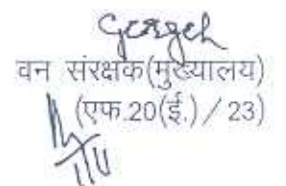 वन संरक्षक(मुख्यालय)
(एफ.20(ई.) / 23)